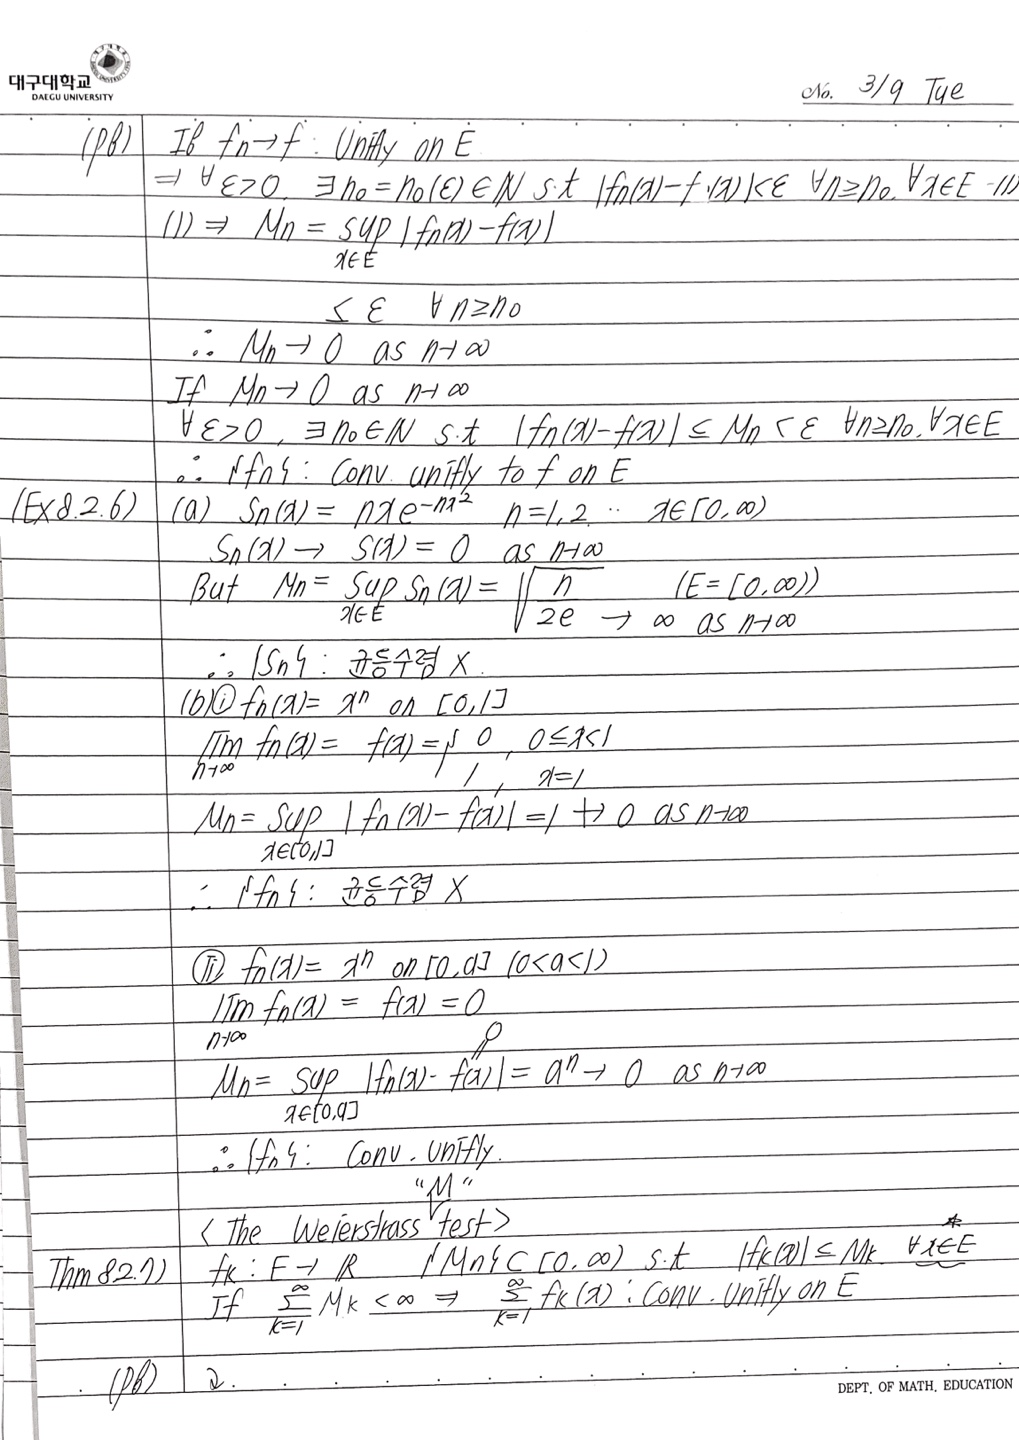 대구대학교
DAEGU UNIVERSITY
No. 3/9 Tue
(pf) If fn→f : Unifly on E
⇒ ∀ε>0, ∃n₀=n₀(ε)∈N s.t |fn(x)-f(x)|<ε ∀n≥n₀, ∀x∈E -(1)
(1) ⇒ Mn = sup |fn(x)-f(x)|
x∈E
≤ ε ∀n≥n₀
∴ Mn→0 as n→∞
If Mn→0 as n→∞
∀ε>0, ∃n₀∈N s.t |fn(x)-f(x)| ≤ Mn < ε ∀n≥n₀, ∀x∈E
∴ {fn} : Conv. unifly to f on E
(Ex 8.2.6) (a) Sn(x) = nxe^{-nx²} n=1,2 ‥ x∈[0,∞)
Sn(x) → S(x) = 0 as n→∞
But Mn = sup Sn(x) = √(n/2e) (E=[0,∞))
x∈E → ∞ as n→∞
∴ {Sn} : 균등수렴 X.
(b) ⓘ fn(x) = xⁿ on [0,1]
lim fn(x) = f(x) = { 0 , 0≤x<1
n→∞ 1 , x=1
Mn = sup |fn(x)-f(x)| = 1 ↛ 0 as n→∞
x∈[0,1]
∴ {fn} : 균등수렴 X
ⓘⓘ fn(x) = xⁿ on [0,a] (0<a<1)
lim fn(x) = f(x) = 0
n→∞
0
Mn = sup |fn(x)-f(x)| = aⁿ → 0 as n→∞
x∈[0,a]
∴ {fn} : Conv. unifly.
"M"
< The Weierstrass test >
Thm 8.2.7) fk : E → R {Mn} ⊂ [0,∞) s.t |fk(x)| ≤ Mk ∀x∈E *
If ∑_{k=1}^{∞} Mk < ∞ ⇒ ∑_{k=1}^{∞} fk(x) : Conv. Unifly on E
(pf) 2.
DEPT. OF MATH. EDUCATION